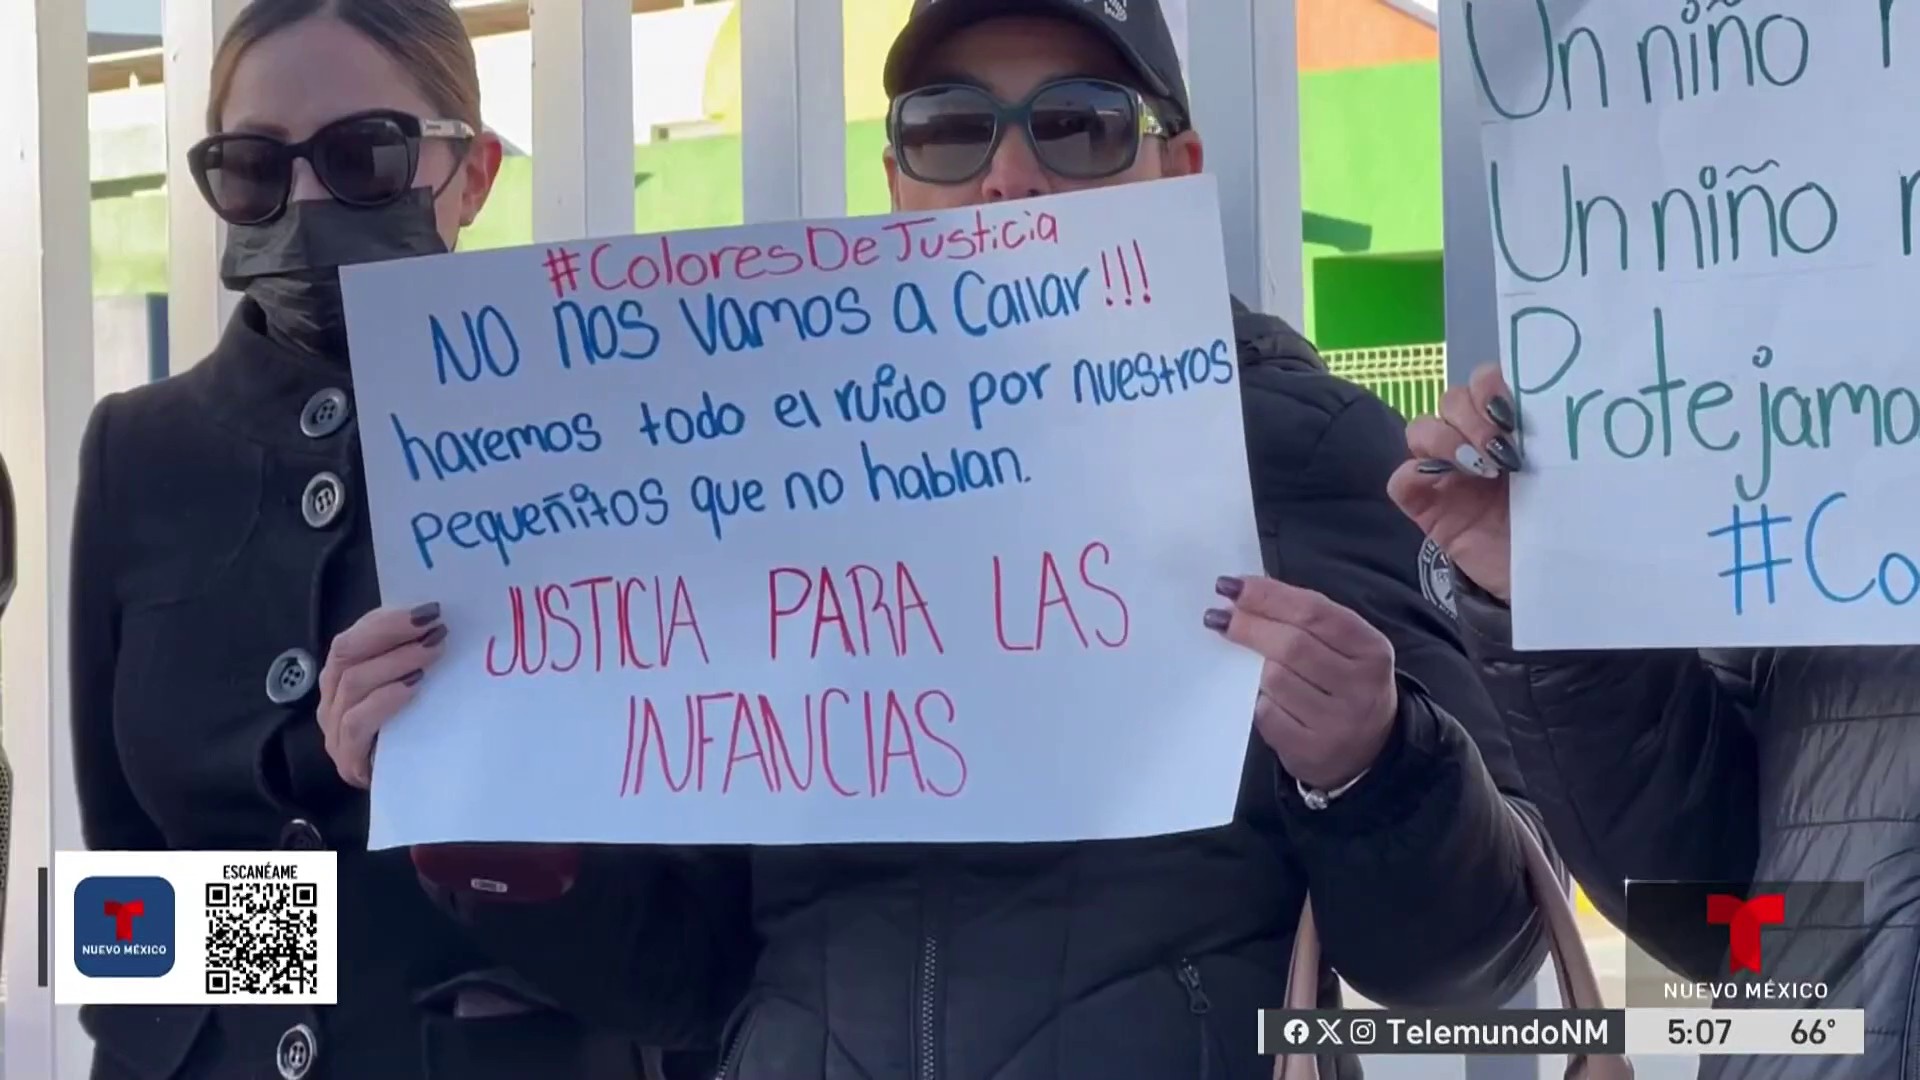 #ColoresDeJusticia
NO nos vamos a Callar!!!
haremos todo el ruido por nuestros
pequeñitos que no hablan.
JUSTICIA PARA LAS
INFANCIAS
Un niño
Un niño
Protejamo
#Co
ESCANÉAME
NUEVO MÉXICO
NUEVO MÉXICO
TelemundoNM
5:07 66°